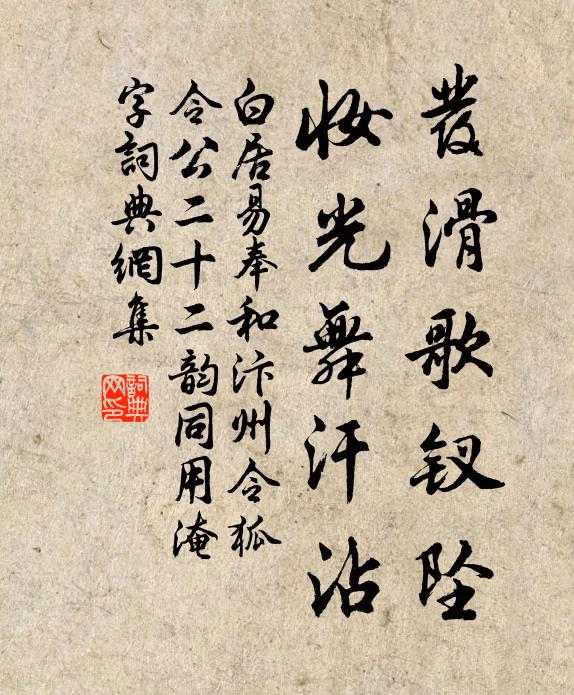 發滑歌釵坠
妆光舞汗沾
白居易奉和汴州令狐
令公二十二韵同用淹
字詞典網集
詞典网印